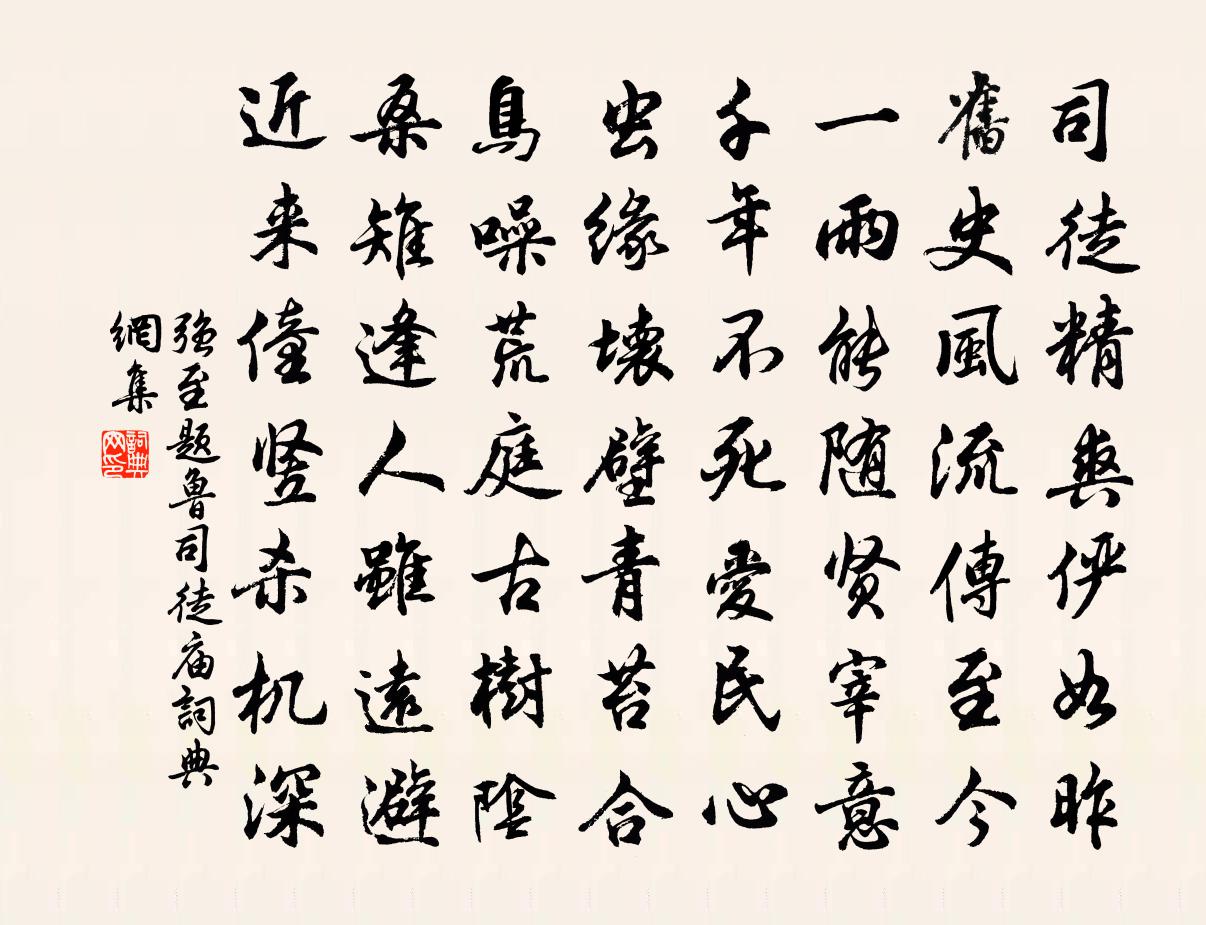 司徒精爽俨如昨
舊史風流傳至今
一雨能随贤宰意
千年不死愛民心
虫缘壊壁青苔合
鳥噪荒庭古樹陰
桑雉逢人雖遠避
近来僮竖杀机深
强至题魯司徒庙詞典
網集
詞典网印